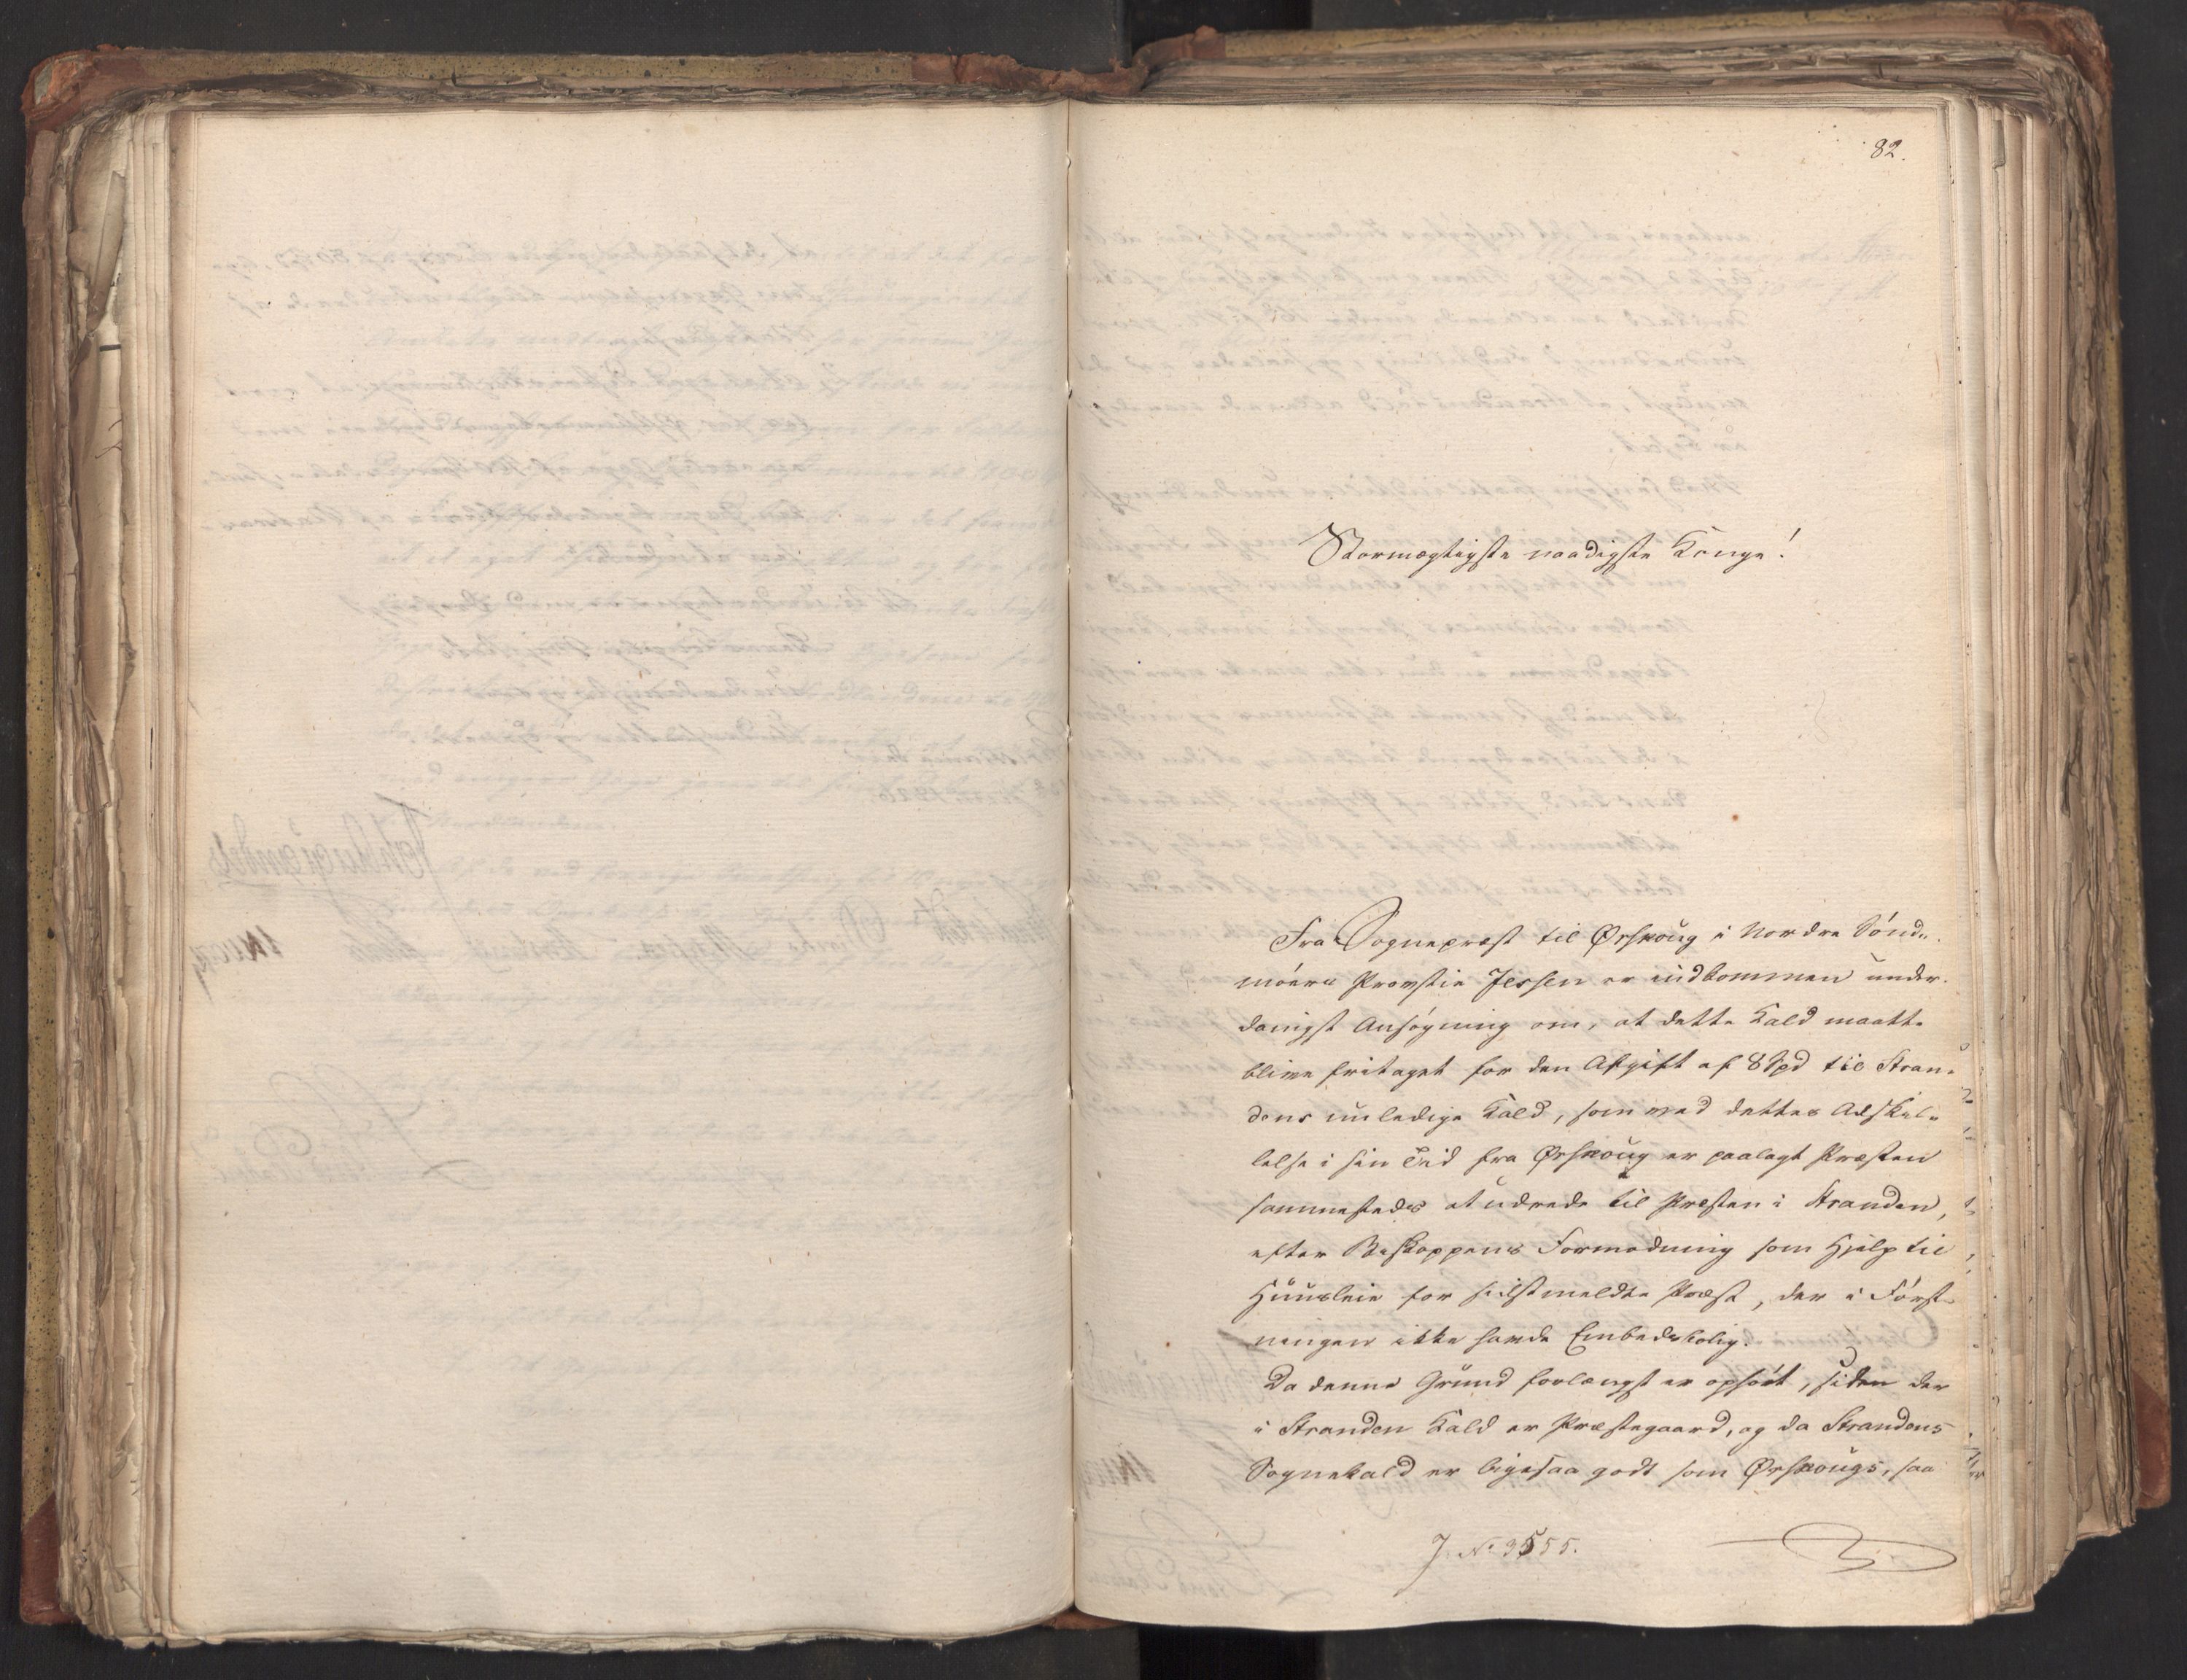 82.
Stormægtigste naadigste Konge!
Fra Sognepræst til Ørskoug i Nordre Sønd-
møers Provstie Jessen er indkommen under-
danigst Ansøgning om, at dette Kald maatte
blive fritaget for den Afgift af 8 Spd til Stran-
dens uuledige Kald, som ved dettes Adskil-
lelse i sin Tid fra Ørskoug er paalagt Præsten
sammesteds at udrede til Præsten i Stranden,
efter Biskoppens Formodning som Hjelp til
Huusleie for sidstmeldte Præst, der i Først-
ningen ikke havde Embedsbolig.
Da denne Grund forlængst er ophørt, siden der
i Stranden Kald er Præstegaard, og da Strandens
Sognekald er ligesaa godt som Ørskougs, saa
J. No 3555.